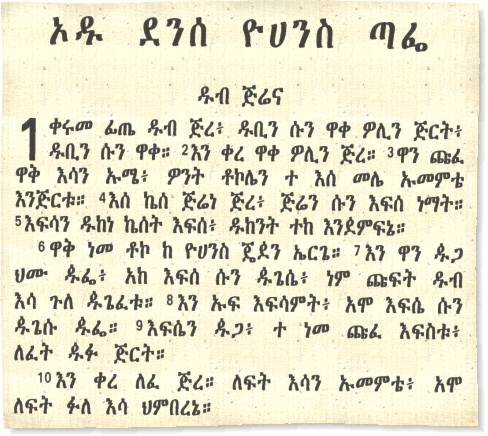 ኦዱ ደንሰ ዮሀንስ ጣፌ
ዱብ ጅሬና
1 ቀሩመ ፊጤ ዱብ ጅረ፥ ዱቢን ሱን ዋቀ ዎሊን ጅርት፥
ዱቢን ሱን ዋቀ። 2እን ቀረ ዋቀ ዎሊን ጅረ። 3ዋን ጩፈ
ዋቅ እሳን ኡሜ፥ ዎንት ቶኮሌን ተ እሰ መሌ ኡመምቴ
እንጅርቱ። 4እሰ ኬሰ ጅሬነ ጅረ፥ ጅሬን ሱን እፍሰ ነማት።
5እፍሳን ዱከነ ኬሰት እፍሰ፥ ዱከንት ተከ እንደምፍኔ።
6ዋቅ ነመ ቶኮ ከ ዮሀንስ ጄደን ኤርጌ። 7እን ዋን ዹጋ
ህሙ ዹፌ፥ አከ እፍሰ ሱን ዹጌሴ፥ ነም ጩፍት ዱብ
እሳ ጉለ ዹጌፈቱ። 8እን ኡፍ እፍሳምት፥ አሞ እፍሴ ሱን
ዹጌሱ ዹፌ። 9እፍሴን ዹጋ፥ ተ ነመ ጩፈ እፍስቱ፥
ለፈት ዹፉ ጅርት።
10እን ቀረ ለፈ ጅረ። ለፍት እሳን ኡመምቴ፥ አሞ
ለፍት ፉለ እሳ ህምበረኔ።